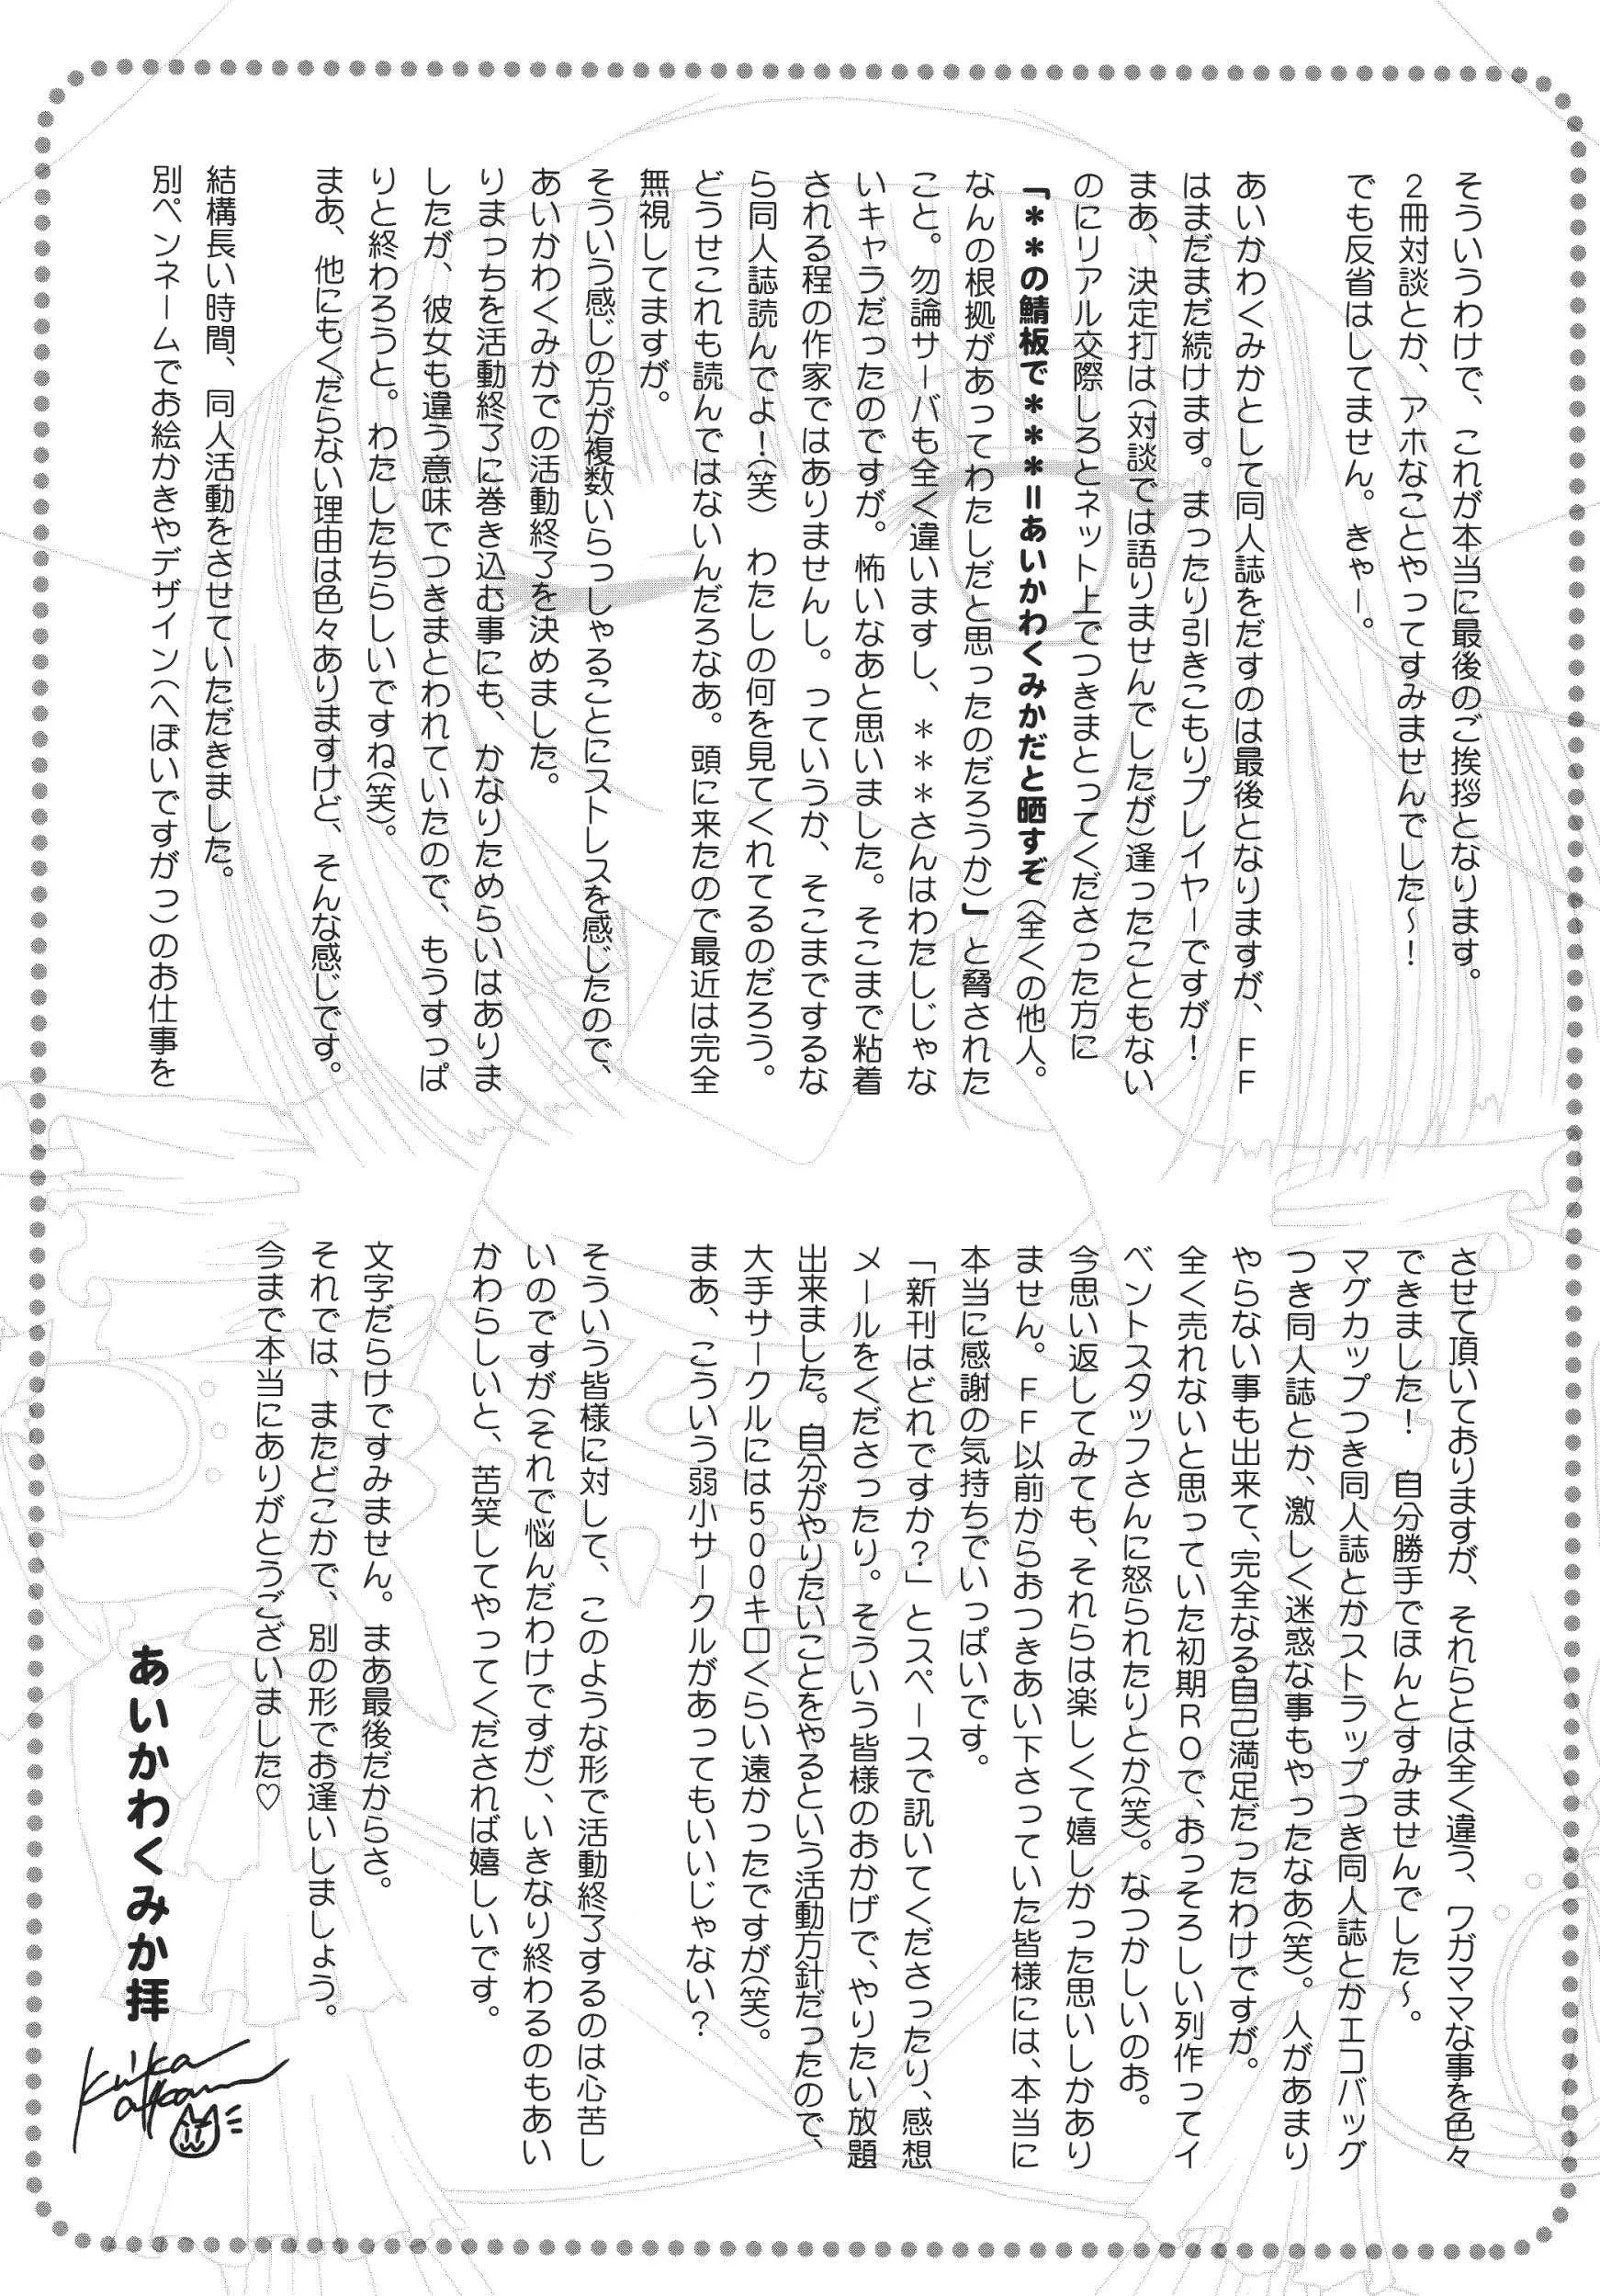 そういうわけで、これが本当に最後のご挨拶となります。
2冊対談とか、アホなことやってすみませんでした～！
でも反省はしてません。きゃー。
あいかわくみかとして同人誌をだすのは最後となりますが、FF
はまだまだ続けます。まったり引きこもりプレイヤーですが！
まあ、決定打は（対談では語りませんでしたが）逢ったこともない
のにリアル交際しろとネット上でつきまとってくださった方に
「＊＊の鯖板で＊＊＊＝あいかわくみかだと晒すぞ（全くの他人。
なんの根拠があってわたしだと思ったのだろうか）」と脅された
こと。勿論サーバも全く違いますし、＊＊＊さんはわたしじゃな
いキャラだったのですが。怖いなあと思いました。そこまで粘着
される程の作家ではありませんし。っていうか、そこまでするな
ら同人誌読んでよ！（笑）　わたしの何を見てくれてるのだろう。
どうせこれも読んではないんだろなあ。頭に来たので最近は完全
無視してますが。
そういう感じの方が複数いらっしゃることにストレスを感じたので、
あいかわくみかでの活動終了を決めました。
りまっちを活動終了に巻き込む事にも、かなりためらいはありま
したが、彼女も違う意味でつきまとわれていたので、もうすっぱ
りと終わろうと。わたしたちらしいですね（笑）。
まあ、他にもくだらない理由は色々ありますけど、そんな感じです。
結構長い時間、同人活動をさせていただきました。
別ペンネームでお絵かきやデザイン（へぼいですがっ）のお仕事を
させて頂いておりますが、それらとは全く違う、ワガママな事を色々
できました！　自分勝手でほんとすみませんでした～。
マグカップつき同人誌とかストラップつき同人誌とかエコバッグ
つき同人誌とか、激しく迷惑な事もやったなあ（笑）。人があまり
やらない事も出来て、完全なる自己満足だったわけですが。
全く売れないと思っていた初期ROで、おっそろしい列作ってイ
ベントスタッフさんに怒られたりとか（笑）。なつかしいのお。
今思い返してみても、それらは楽しくて嬉しかった思いしかあり
ません。FF以前からおつきあい下さっていた皆様には、本当に
本当に感謝の気持ちでいっぱいです。
「新刊はどれですか？」とスペースで訊いてくださったり、感想
メールをくださったり。そういう皆様のおかげで、やりたい放題
出来ました。自分がやりたいことをやるという活動方針だったので、
大手サークルには500キロくらい遠かったですが（笑）。
まあ、こういう弱小サークルがあってもいいじゃない？
そういう皆様に対して、このような形で活動終了するのは心苦し
いのですが（それで悩んだわけですが）、いきなり終わるのもあい
かわらしいと、苦笑してやってくだされば嬉しいです。
文字だらけですみません。まあ最後だからさ。
それでは、またどこかで、別の形でお逢いしましょう。
今まで本当にありがとうございました♡
あいかわくみか拝